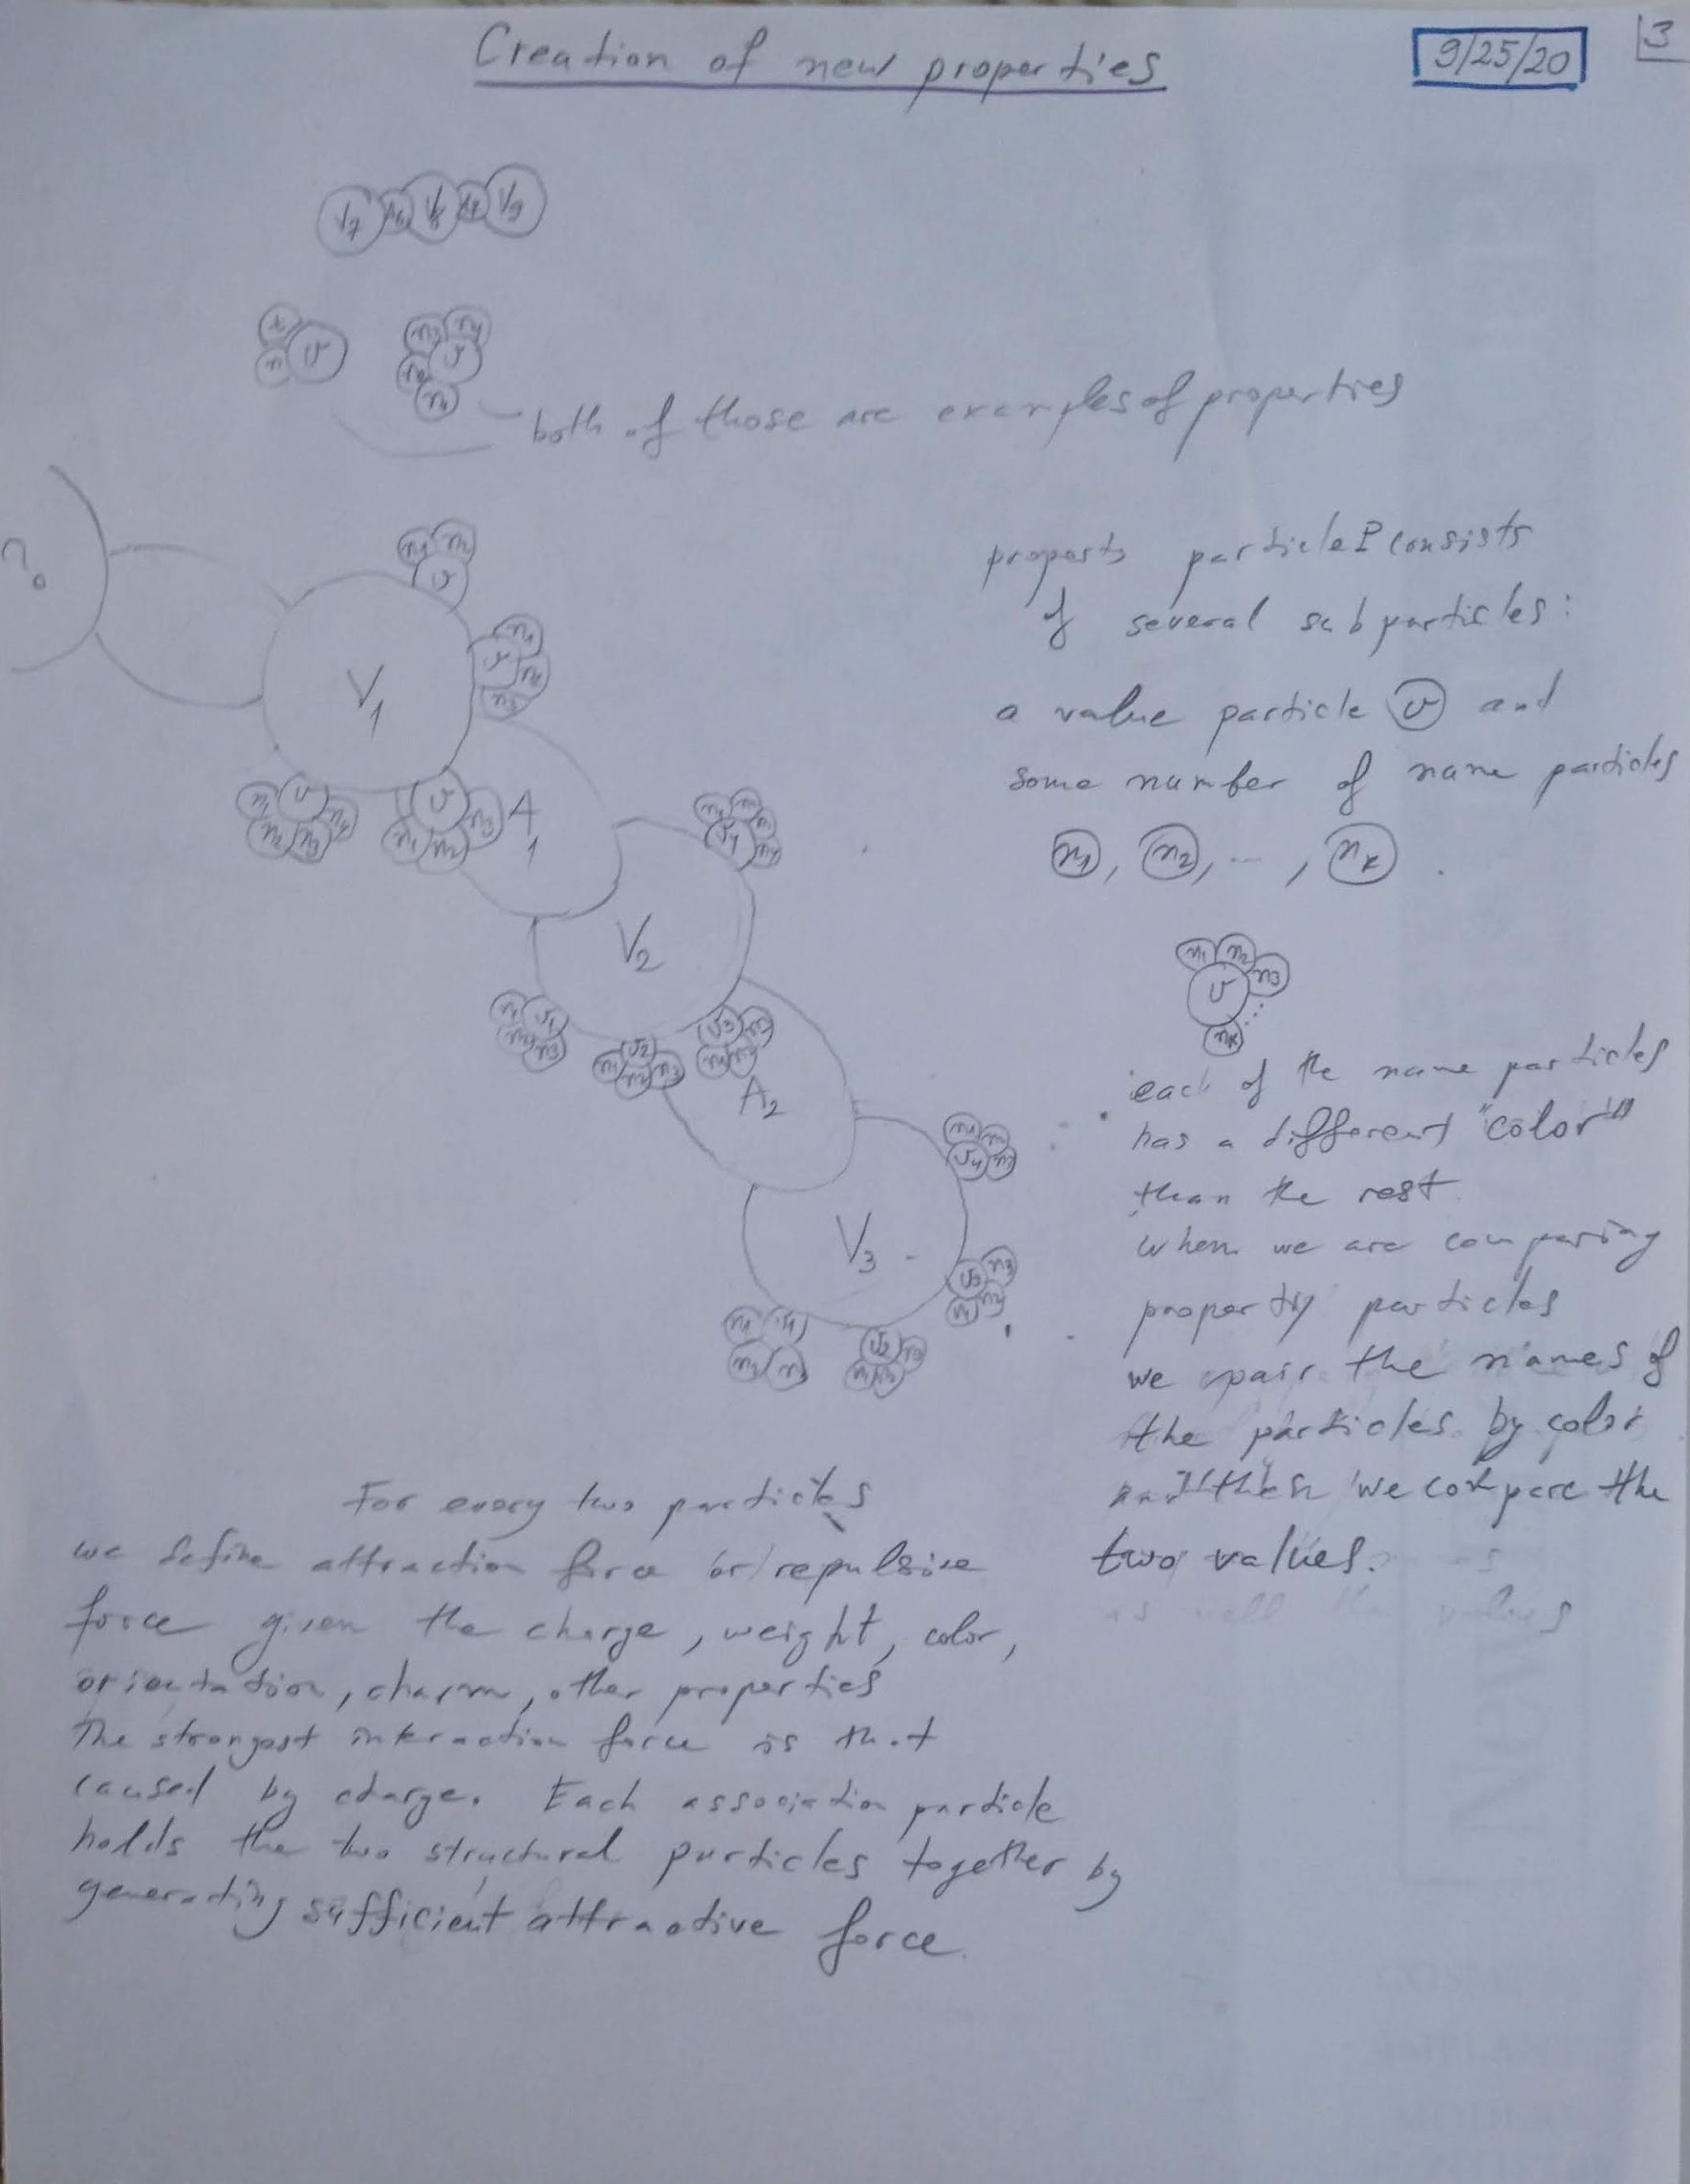 Creation of new properties
9/25/20
3
V7 V8 V9
n v
v
both of those are examples of properties
?
property particle P consists
of several subparticles:
a value particle v and
some number of name particles
n1, n2, ... , nk.
V1
A1
V2
A2
V3
n1 n2 n3
v
nk
each of the name particles
has a different "color"
than the rest
when we are comparing
property particles
we pair the names of
the particles by color
and then we compare the
two values.
as well the values
For every two particles
we define attraction force or repulsive
force given the charge, weight, color,
orientation, charm, other properties
The strongest interaction force is that
caused by charge. Each association particle
holds the two structural particles together by
generating sufficient attractive force.